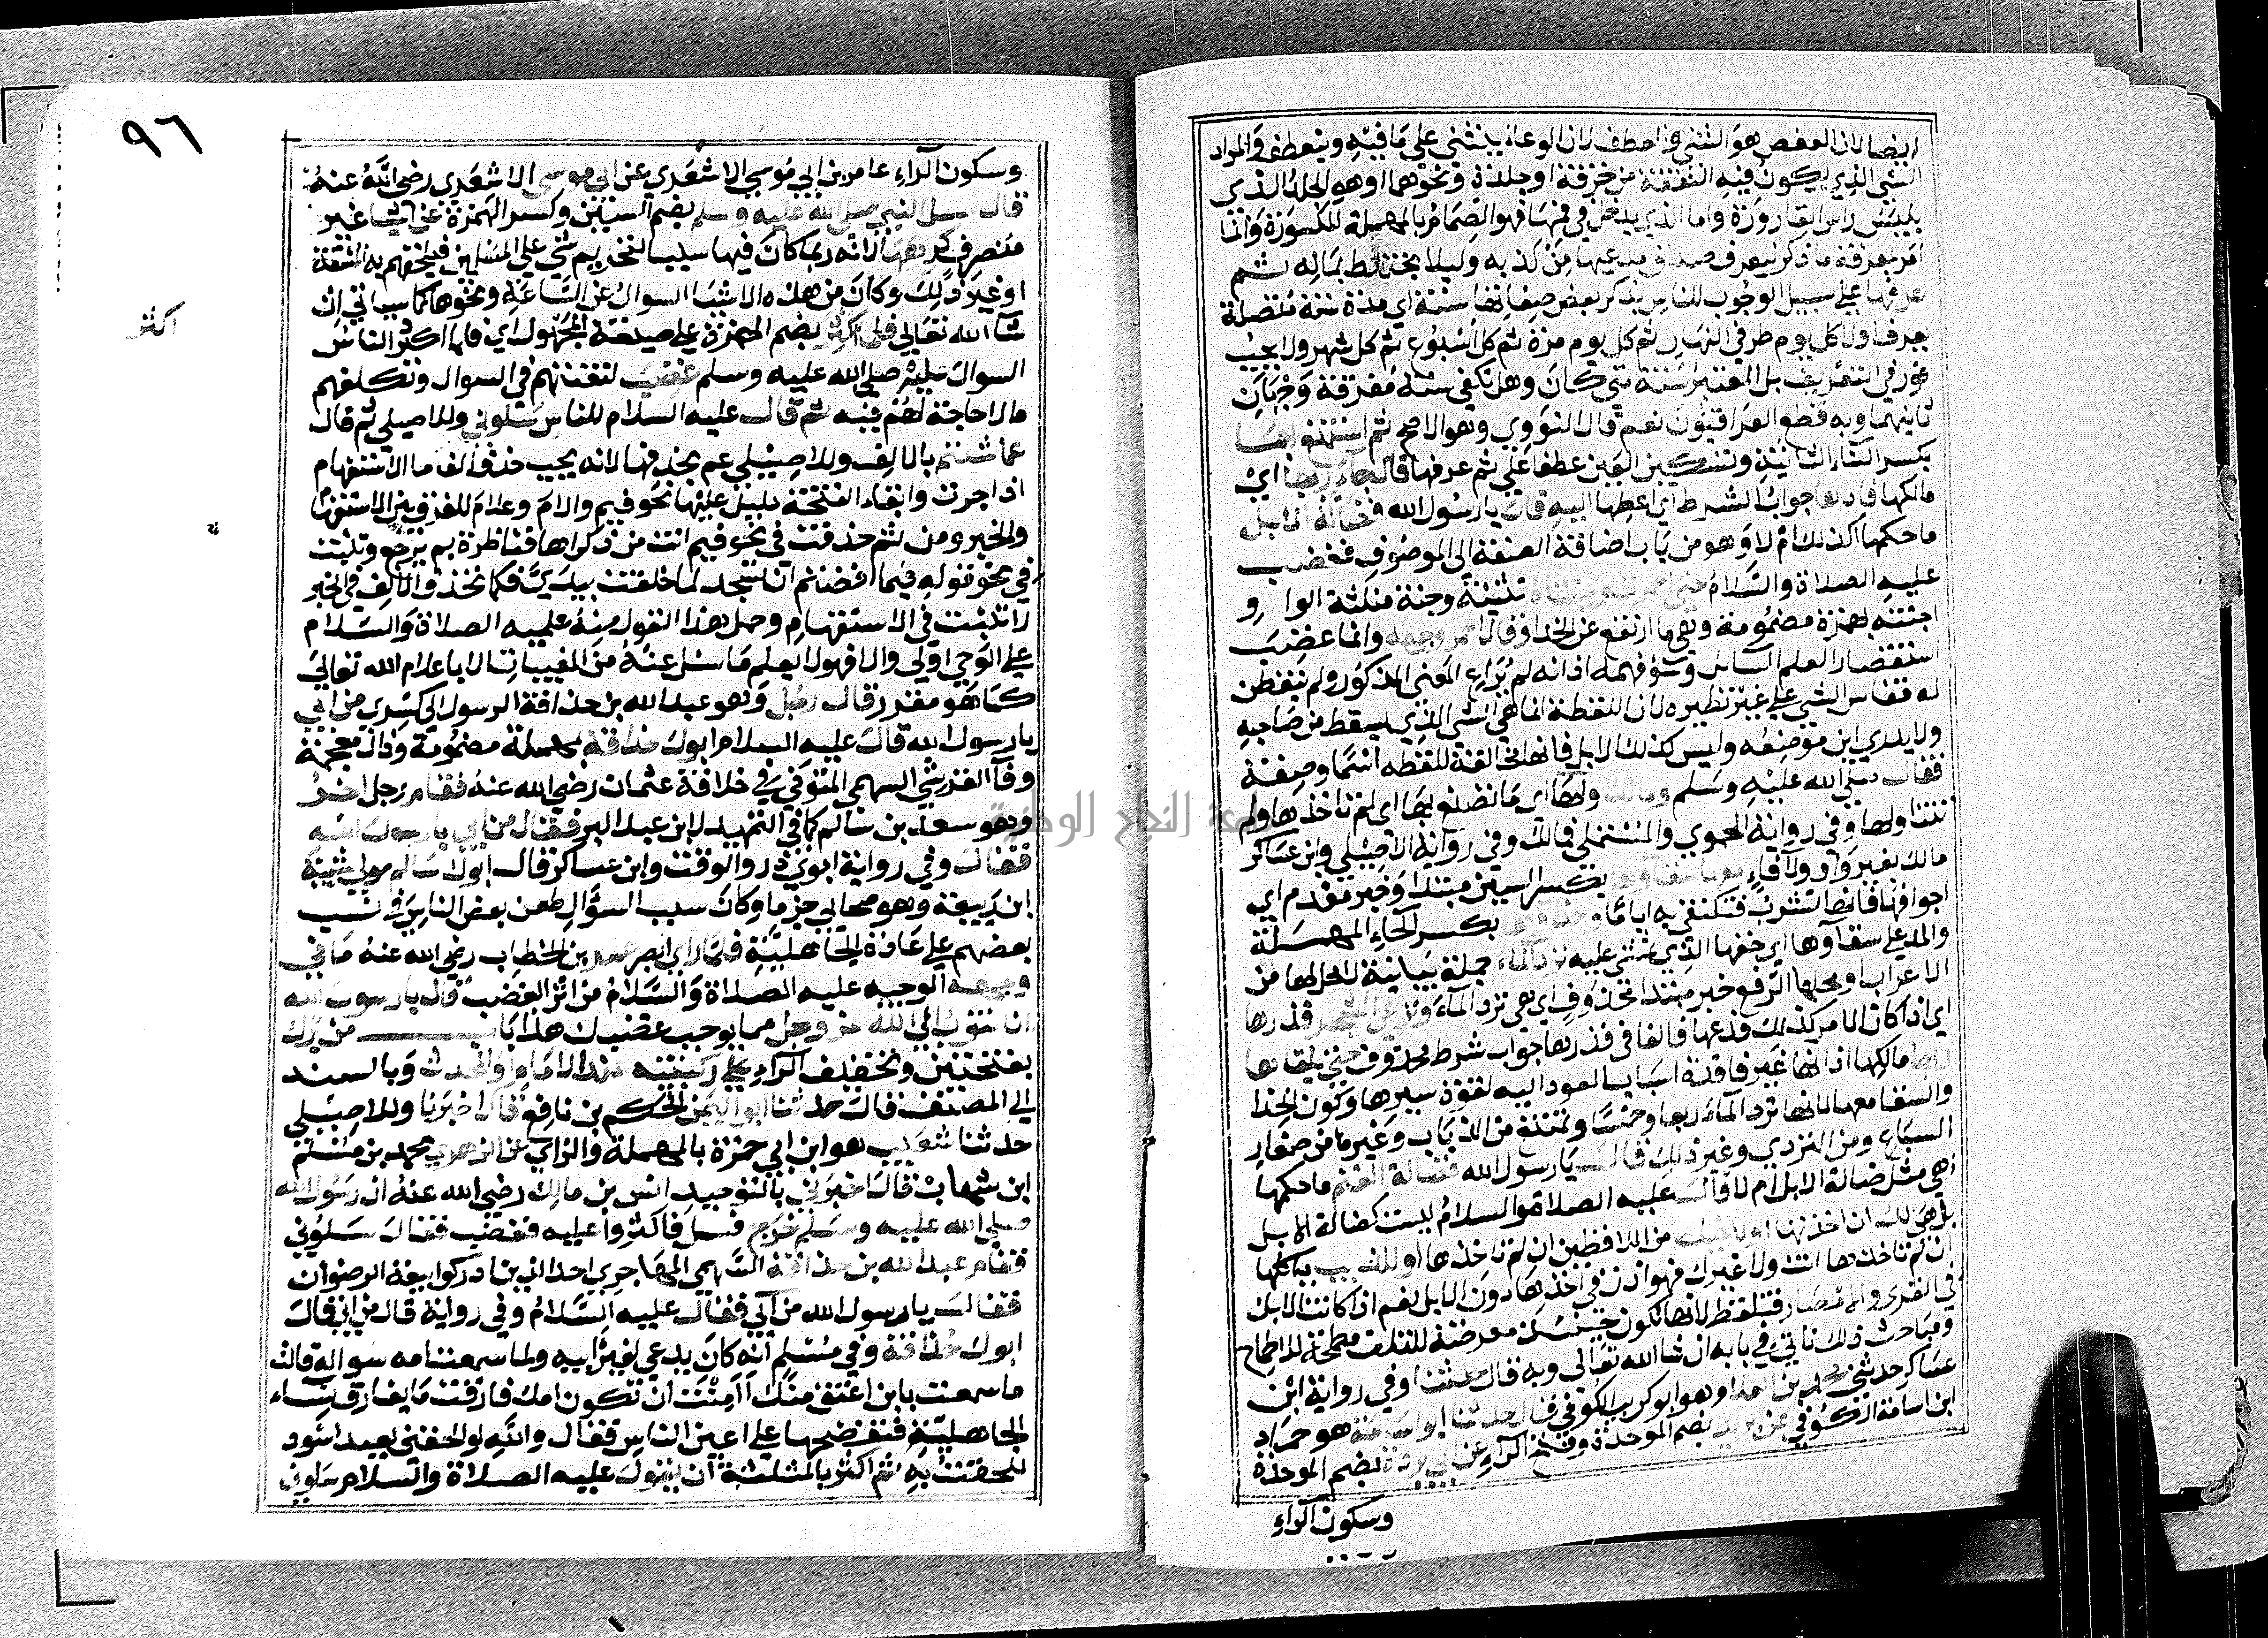 ايضا لان العفص هو الثني والعطف لان الوعاء ينثني علي ما فيه وينعطف والمراد
الشي الذي يكون فيه النفقة من خرقة او جلدة ونحوهما او هو الجلد الذي
يلبس راس القارورة واما الذي يدخل في فمها فهو الصمام بالمهملة المكسورة وانما
امر بمعرفة ما ذكر ليعرف صدق مدعيها من كذبه وليلا يختلط بماله ثم
عرفها علي سبيل الوجوب للناس بذكر بعض صفاتها سنة اي مدة سنة متصلة
يعرف اولا كل يوم طرفي النهار ثم كل يوم مرة ثم كل اسبوع ثم كل شهر ولا يجب
فور في التعريف بل المعتبر سنة متي كان وهل تكفي سنة مفرقة وجهان
ثانيهما وبه قطع العراقيون نعم قال النووي وهو الاصح ثم استمتع بها
بكسر التاء الثانية وتسكين العين عطفا علي ثم عرفها فان جاء ربها اي
مالكها فادها جواب الشرط اي اعطها اليه قال يا رسول الله فضالة الابل
ما حكمها اكذلك ام لا وهو من باب اضافة الصفة الي الموصوف فغضب
عليه الصلاة والسلام حتي احمرت وجنتاه تثنية وجنة مثلثة الواو
اجنة بهمزة مضمومة وهي ما ارتفع عن الخد او قال احمر وجهه وانما غضب
استقصارا لعلم السائل وسوء فهمه اذ انه لم يراع المعني المذكور ولم يتفطن
له فقاس الشي علي غير نظيره لان اللقطة انما هي الشي الذي يسقط من صاحبه
ولا يدري اين موضعه وليس كذلك الابل فانها مخالفة للقطة اسما وصفة
فقال صلي الله عليه وسلم ومالك ولها اي ما تصنع بها اي لم تاخذها ولم
تتناولها وفي رواية الحموي والمستملي فمالك وفي رواية الاصيلي وابن عساكر
مالك بغير واو ولا فاء معها سقاؤها بكسر السين مبتدا وخبر مقدم اي
اجوافها فانها تشرب فتكتفي به اياما وحذاؤها بكسر الحاء المهملة
والمد علي سقاوها اي خفها الذي تمشي عليه ترد الماء جملة بيانية لا محل لها من
الاعراب او محلها الرفع خبر مبتدا محذوف اي هي ترد الماء وترعي الشجر فذرها
اي اذا كان الامر كذلك فدعها فالفا في فذرها جواب شرط محذوف حتي يلقاها
ربها مالكها اذ انها غير فاقدة اسباب العود اليه لقوة سيرها وكون الحذا
والسقا معها لانها ترد الماء ربعا وخمسا وتمتنع من الذياب وغيرها من صغار
السباع ومن التردي وغير ذلك قال يا رسول الله فضالة الغنم ما حكمها
اهي مثل ضالة الابل ام لا قال عليه الصلاة والسلام ليست كضالة الابل
بل هي لك ان اخذتها او لاخيك من اللاقطين ان لم تاخذها او للذيب ياكلها
ان لم تاخذها انت ولا غيرك فهو اذن في اخذها دون الابل نعم اذا كانت الابل
في القري والامصار فتلتقط لانها تكون حينئذ معرضة للتلف مطمحة للاطماع
ومباحث ذلك تاتي في بابه ان شا الله تعالي وبه قال حدثنا وفي رواية ابن
عساكر حدثني محمد بن العلا وهو ابو كريب الكوفي قال حدثنا ابو اسامة هو حماد
ابن اسامة الكوفي عن بريد بضم الموحدة وفتح الراء عن ابي بردة بضم الموحدة
وسكون الراء
٩٦
وسكون الراء عامر بن ابي موسي الاشعري عن ابي موسي الاشعري رضي الله عنه
قال سيل النبي صلي الله عليه وسلم بضم السين وكسر الهمزة عن اشيا غير
منصرف كرهها لانه ربما كان فيها سببا لتحريم شي علي المسلمين فيلحقهم به المشقة
او غير ذلك وكان من هذه الاشيا السوال عن الساعة ونحوها كما سياتي ان
شا الله تعالي فلما اكثر بضم الهمزة علي صيغة المجهول اي فلما اكثر الناس
اكثر
السوال عليه صلي الله عليه وسلم غضب لتعنتهم في السوال وتكلفهم
ما لا حاجة لهم فيه ثم قال عليه السلام للناس سلوني وللاصيلي ثم قال
عما شئتم بالالف وللاصيلي عم بحذفها لانه يجب حذف الف ما الاستفهام
اذا جرت وابقاء الفتحة دليل عليها نحو فيم والام وعلام للفرق بين الاستفهام
والخبر ومن ثم حذفت في نحو فيم انت من ذكراها فناظرة بم يرجع وتثبت
في نحو قوله فيما افضتم ان تسجد لما خلقت بيدي فكما تحذف الالف في الخبر
لا تثبت في الاستفهام وحمل هذا القول منه عليه الصلاة والسلام
علي الوحي اولي والا فهو لا يعلم ما سئل عنه من المغيبات الا باعلام الله تعالي
كما هو مقدر قال رجل وهو عبد الله بن حذافة الرسول الي كسري من ابي
يا رسول الله قال عليه السلام ابوك حذافة بمهملة مضمومة وذال معجمة
وفاء القرشي السهمي المتوفي في خلافة عثمان رضي الله عنه فقام رجل اخر
وهو سعد بن سالم كما في التمهيد لابن عبد البر فقال من ابي يا رسول الله
فقال وفي رواية ابوي ذر والوقت وابن عساكر قال ابوك سالم مولي شيبة
ابن ربيعة وهو صحابي جزما وكان سبب السؤال طعن بعض الناس في نسب
بعضهم علي عادة الجاهلية فلما راي ابصر عمر بن الخطاب رضي الله عنه ما في
وجهه الوجيه عليه الصلاة والسلام من اثر الغضب قال يا رسول الله
انا نتوب الي الله عز وجل مما يوجب غضبك هذا باب من برك
بفتحتين وتخفيف الراء علي ركبتيه عند الامام او المحدث وبالسند
الي المصنف قال حدثنا ابو اليمن الحكم بن نافع قال اخبرنا وللاصيلي
حدثنا شعيب هو ابن ابي حمزة بالمهملة والزاي عن الزهري محمد بن مسلم
ابن شهاب قال اخبرني بالتوحيد انس بن مالك رضي الله عنه ان رسول الله
صلي الله عليه وسلم خرج فسل فاكثروا عليه فغضب فقال سلوني
فقام عبد الله بن حذافة السهمي المهاجري احد الذين ادركوا بيعة الرضوان
فقال يا رسول الله من ابي فقال عليه السلام وفي رواية قال من ابي قال
ابوك حذافة وفي مسلم انه كان يدعي لغير ابيه ولما سمعت امه سواله قالت
ما سمعت بابن اعق منك اامنت ان تكون امك قارفت ما يقارف نساء
الجاهلية فتفضحها علي اعين الناس فقال والله لو الحقني بعبد اسود
للحقت به ثم اكثر بالمثلثة ان يقول عليه الصلاة والسلام سلوني
جامعة النجاح الوطنية